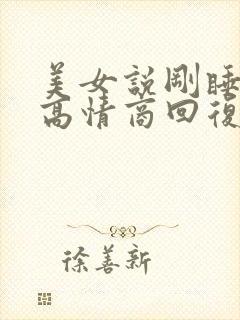 美女說剛睡
高情商回復
徐善新